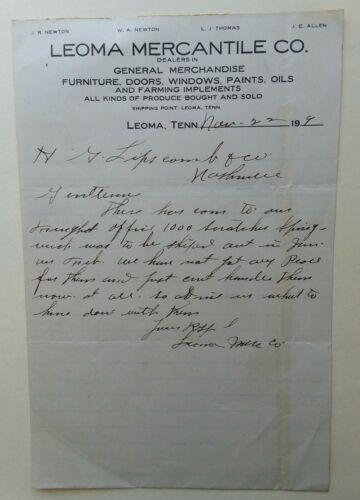 J. R. NEWTON W. A. NEWTON L. J. THOMAS J. E. ALLEN
LEOMA MERCANTILE CO.
DEALERS IN
GENERAL MERCHANDISE
FURNITURE, DOORS, WINDOWS, PAINTS, OILS
AND FARMING IMPLEMENTS
ALL KINDS OF PRODUCE BOUGHT AND SOLD
SHIPPING POINT: LEOMA, TENN.
LEOMA, TENN. Nov-22 191
H G. Lipscomb & co
Nashville
Gentlemen
There has com to our
office 1000
which was to be shiped out in Jan.
or Feb. we have not got any Place
for them and just cant handle them
now at all. so advise us what to
have don with them
Yours
Leoma Merc Co